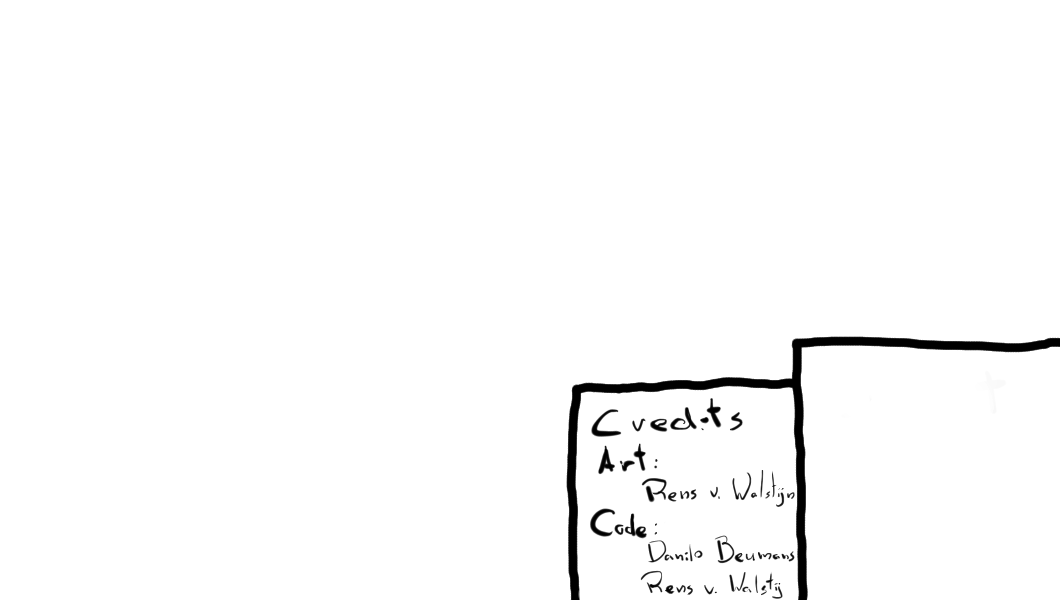 Credits
Art:
Rens v. Walstijn
Code:
Danilo Beumans
Rens v. Walstij